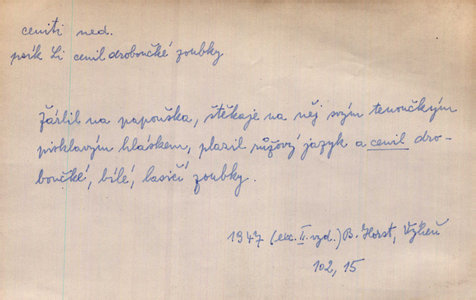 ceniti ned.
psík Li cenil droboučké zoubky
Žárlil na papouška, štěkaje na něj svým tenoučkým
pisklavým hláskem, plazil růžový jazyk a cenil dro-
boučké, bílé, lasičí zoubky.
1947 (exc. II. vyd.) B. Horst, Výheň
102, 15